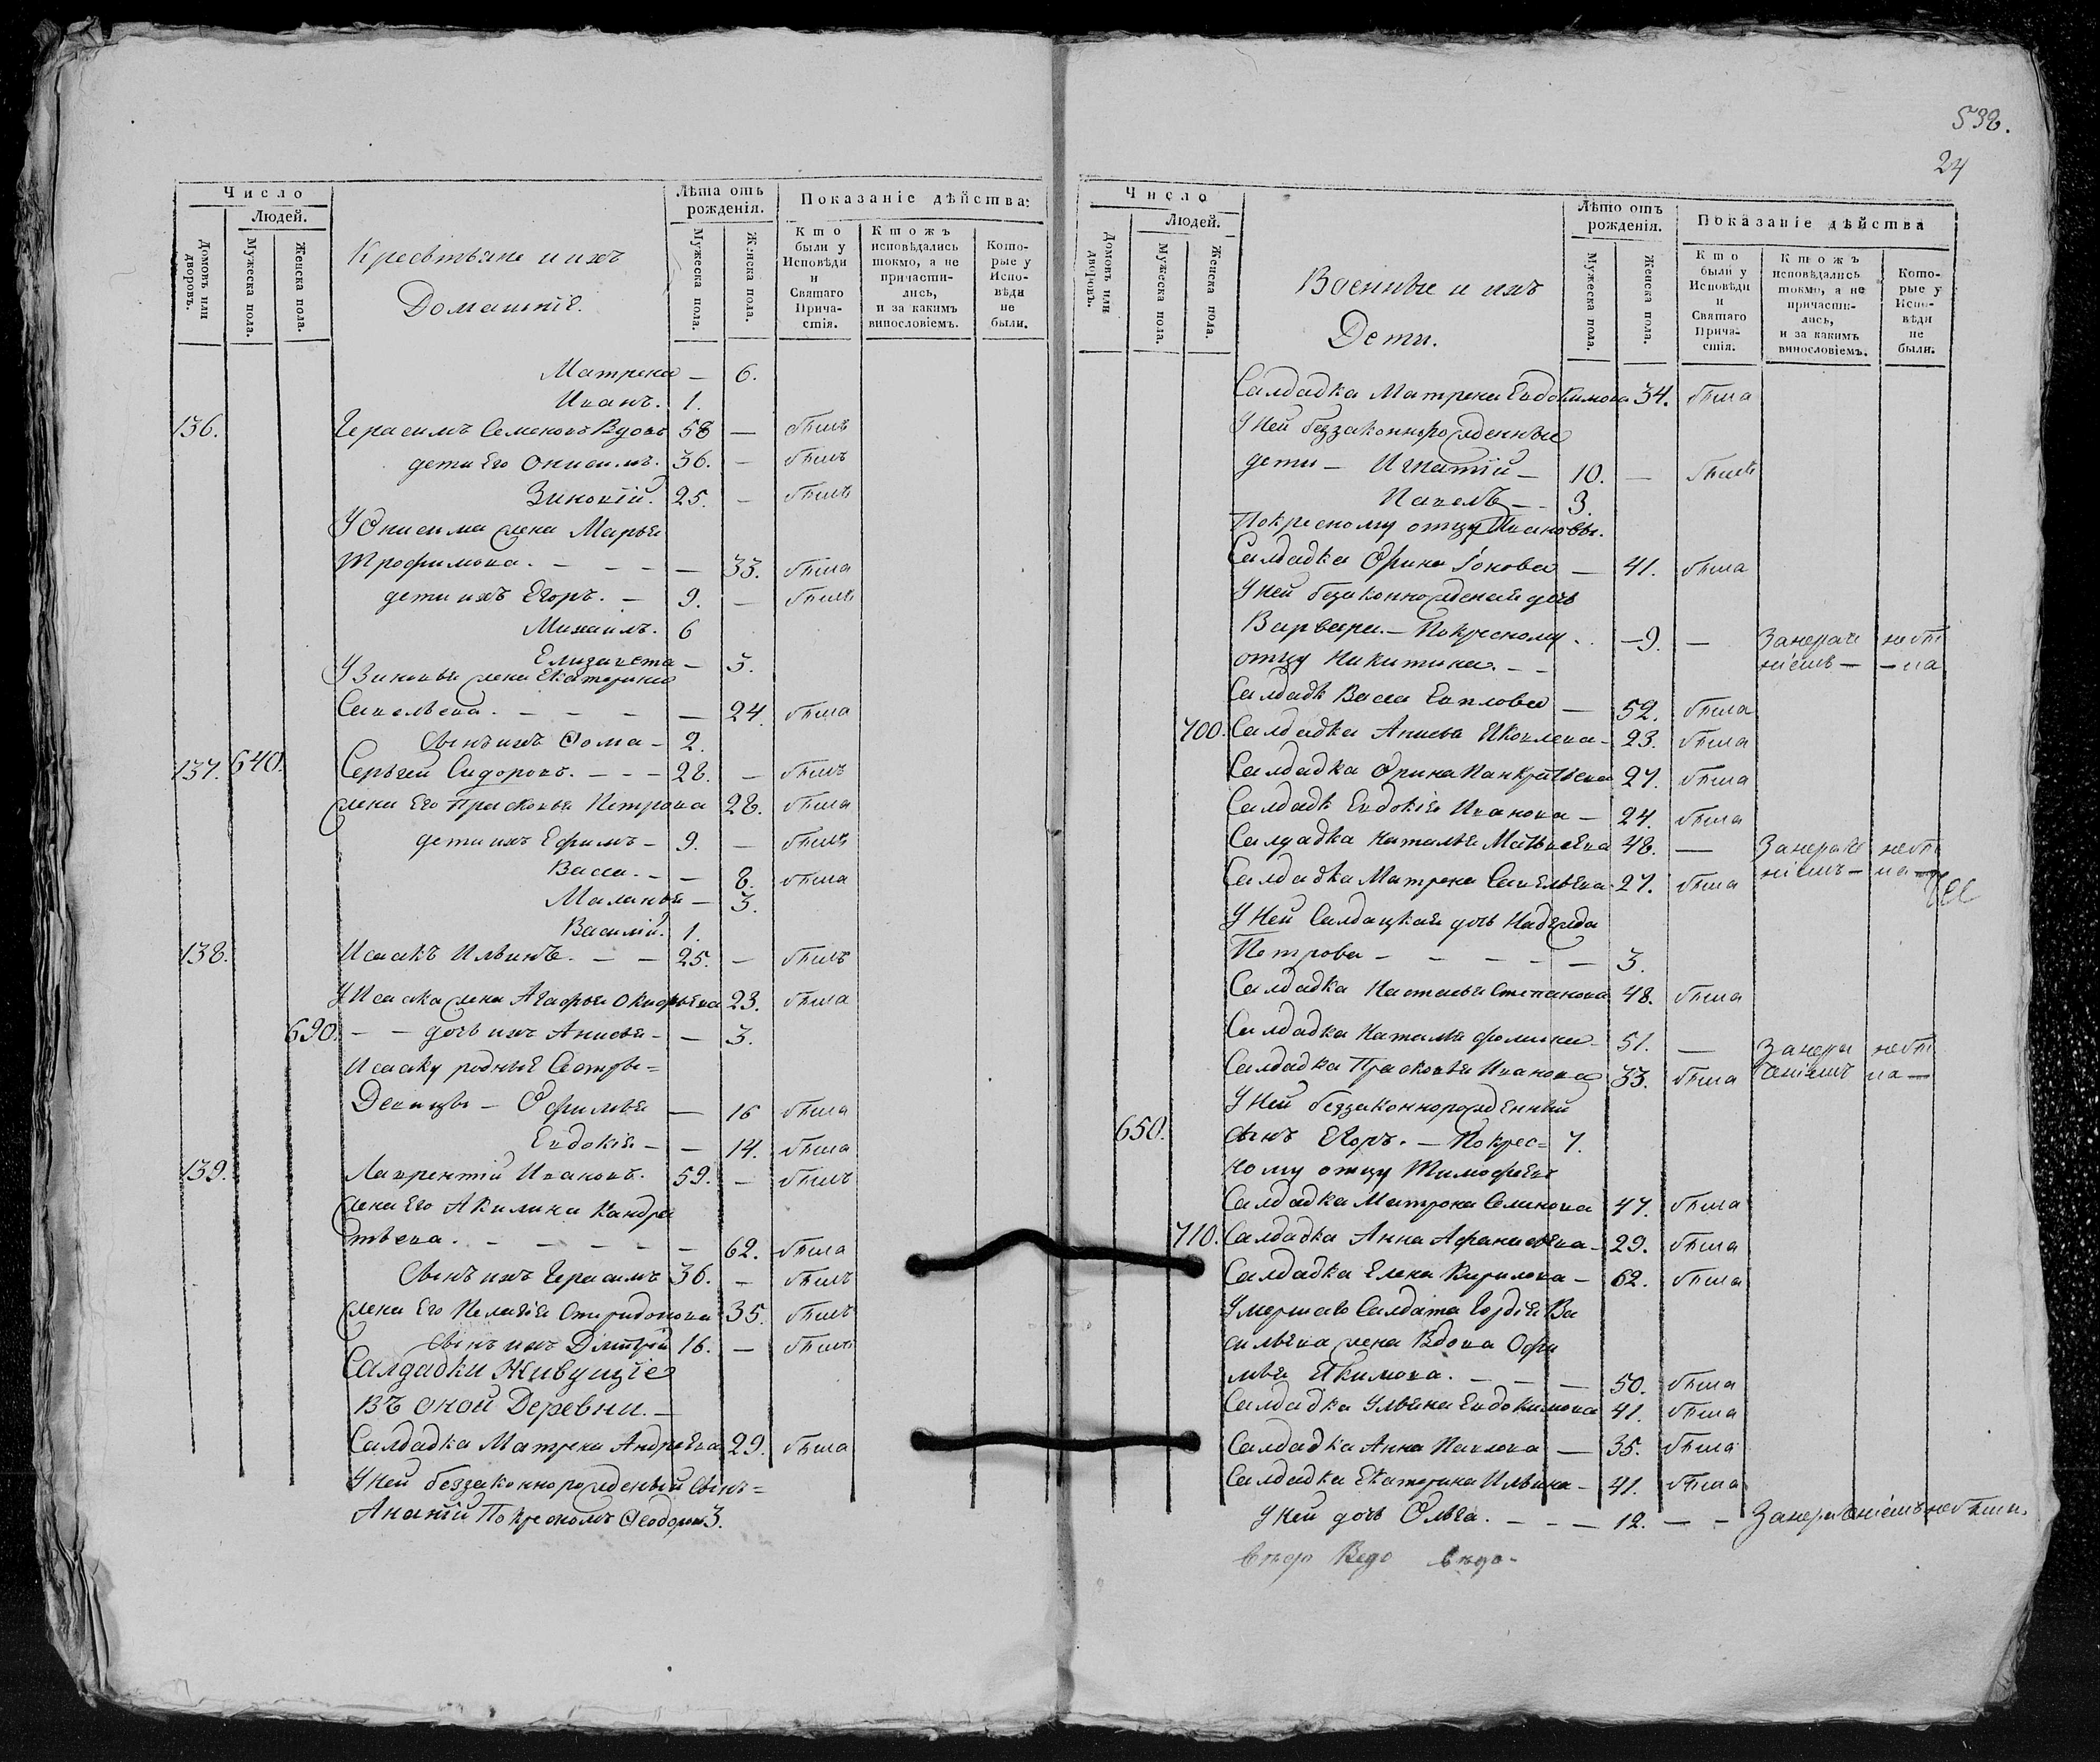 Число
Людей.
Домовъ или дворовъ.
Мужеска пола.
Женска пола.
Крестьяне и ихъ
Домашніе.
Лѣта отъ рожденія.
Мужеска пола.
Женска пола.
Показаніе дѣйства:
Кто были у Исповѣди и Святаго Причастія.
Ктожъ исповѣдались токмо, а не причастились, и за какимъ винословіемъ.
Которые у Исповѣди не были.
Матрена — 6.
Иванъ. 1.
136. Герасимъ Семеновъ Вдовъ 58 — былъ
дети Его Онисимъ. 36. — былъ
Зиновій. 25. — былъ
У Онисима жена Марья
Трофимова. — — — — 33. была
дети ихъ Егоръ. — 9. — былъ
Михаилъ. 6
Елизавета — 3.
У Зиновья жена Екатерина
Савельева. — — — — 24. была
Сынъ ихъ Фома — 2.
137. 640. Сергей Сидоровъ. — — — 28. — былъ
жена Его Прасковья Петрова 28. была
дети ихъ Ефимъ — 9. — былъ
Васса. — — 8. была
Маланья — 3.
Василій. 1.
138. Исаакъ Ильинъ. — — 25. — былъ
У Исаака жена Агафья 23. была
690. — — дочь ихъ Анисья — — 3.
Исааку родные Сестры =
Девицы — Офимья — 16 была
Евдокія — — 14. была
139. Лаврентій Ивановъ. 59. — былъ
жена Его Акилина Кандра
тьева. — — — — — 62. была
Сынъ ихъ Герасимъ 36. — былъ
жена Его Пелагея Спиридонова 35. былъ
Сынъ ихъ Дмитрій 16. — былъ
Салдадки Живущіе
въ оной Деревни. —
Салдадка Матрена Андреева 29. была
У Ней беззаконнорожденый Сынъ =
Ананій По кресномъ Феодоровъ 3.
538.
24
Число
Людей.
Домовъ или дворовъ.
Мужеска пола.
Женска пола.
Военные и ихъ
Дети.
Лѣто отъ рожденія.
Мужеска пола.
Женска пола.
Показаніе дѣйства
Кто были у Исповѣди и Святаго Причастія.
Ктожъ исповѣдались токмо, а не причастились, и за какимъ винословіемъ.
Которые у Исповѣди не были.
Салдадка Матрена Евдокимова 34. была
У Ней беззаконнорожденные
дети — Игнатій — 10. — былъ
Павелъ — — 3.
По кресному отцу Ивановы.
Салдадка Орина Іонова — 41. была
У Ней безаконнорожденая дочь
Варвара. — По кресному . . — 9. — За нераче не бы
отцу Никитина. — — ніемъ — — ла
Салдадк Васса Евплова — 52. была
700. Салдадка Анисья Яковлева — 23. была
Салдадка Орина Панкратьева 27. была
Салдадк Евдокія Иванова — 24. была
Салдадка Наталья Матвеева 48. — За нераче не бы
ніемъ — ла —
Салдадка Матрена Савельева 27. была
У Ней Салдацкая дочь Надежда
Петрова — — — — — 3.
Салдадка Настасья Степанова 48. была
Салдадка Наталья Фомина — 51. — За нера не бы
Салдадка Прасковья Иванова 33. была ченіемъ ла —
У Ней беззаконнорожденный
650. сынъ Егоръ. — По крес= 7.
ному отцу Тимофеевъ
Салдадка Матрона Семенова 47. была
710. Салдадка Анна Афанасьева — 29. была
Салдадка Елена Кирилова — 62. была
Умершаго Салдата Гордія Ва
сильева жена Вдова Офи
мья Якимова. — — — 50. была
Салдадка Ульяна Евдокимова 41. была
Салдадка Анна Павлова — 35. была
Салдадка Екатерина Ильина — 41. была
У Ней дочь Ольга. — — — 12. — — За нераченіемъ не были.